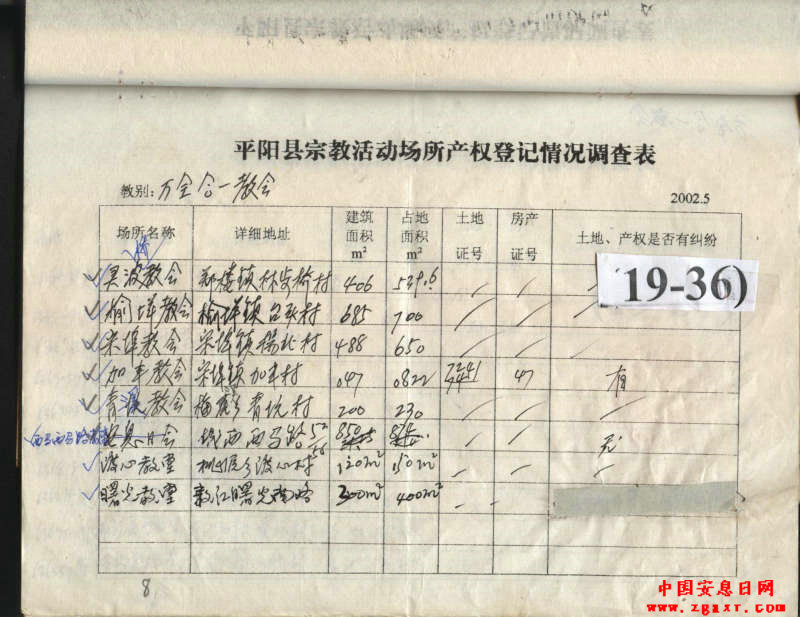 平阳县宗教活动场所产权登记情况调查表
教别：万全合一教会
2002.5
场所名称 详细地址 建筑面积m² 占地面积m² 土地证号 房产证号 土地、产权是否有纠纷
桥
灵波教会 郑楼镇林步桥村 406 539.6
19-36)
榆垟教会 榆垟镇台头村 685 700
宋埠教会 宋埠镇杨北村 488 650
加丰教会 宋埠镇加丰村 .047 0822 47 有
青溪教会 梅溪乡青坑村 200 230
西马路 会 城西西马路52 850 无
渡心教堂 渡心村 120m² 150m²
曙光教堂 敖江曙光南路 300m² 400m²
8
中国安息日网
www.zgaxr.com